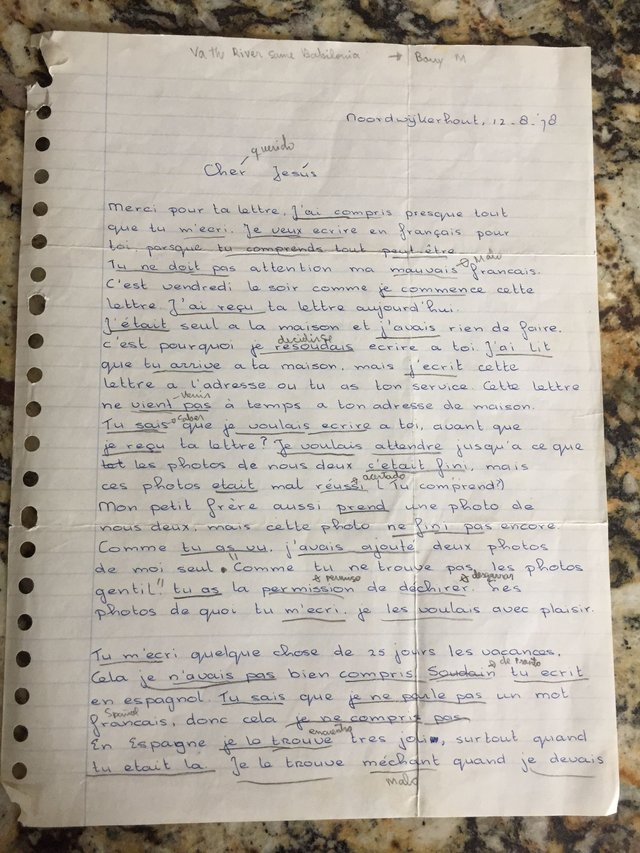 Va th River same Babilonia → Bony M
Noordwijkerhout, 12-8-'78
querido
Cher Jesús
Merci pour ta lettre. J'ai compris presque tout
que tu m'ecri. Je veux ecrire en français pour
toi parsque tu comprends tout peut-être.
Malo
Tu ne doit pas attention ma mauvais francais.
C'est vendredi le soir comme je commence cette
lettre. J'ai reçu ta lettre aujourd'hui.
J'était seul a la maison et j'avais rien de faire.
decidirse
c'est pourquoi je resoudais ecrire a toi. J'ai lit
que tu arrive a ta maison, mais j'ecrit cette
lettre a l'adresse ou tu as ton service. Cette lettre
venir
ne vient pas à temps a ton adresse de maison.
saber
Tu sais que je voulais ecrire a toi, avant que
je reçu ta lettre? Je voulais attendre jusqu'a ce que
les photos de nous deux c'etait fini, mais
acertado
ces photos etait mal réussi (Tu comprend?)
Mon petit frère aussi prend une photo de
nous deux, mais cette photo ne fini pas encore.
Comme tu as vu, j'avais ajouté deux photos
de moi seul. "Comme tu ne trouve pas les photos
permiso desgarrar
gentil" tu as la permission de déchirer. Les
photos de quoi tu m'ecri, je les voulais avec plaisir.
Tu m'ecri quelque chose de 25 jours les vacances.
de pronto
Cela je n'avais pas bien compris. Soudain tu ecrit
en espagnol. Tu sais que je ne parle pas un mot
Español
francais, donc cela je ne compris pas.
encuentro
En Espagne je le trouve tres joli, surtout quand
tu etait la. Je le trouve méchant quand je devais
malo